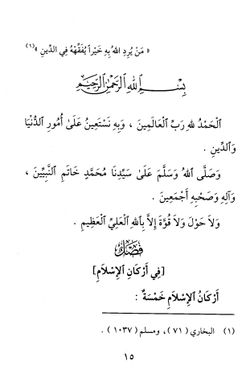 « مَنْ يُرِدِ اللهُ بِهِ خَيْراً يُفَقِّهْهُ فِي الدِّينِ »(١)
بِسْمِ اللهِ الرَّحْمٰنِ الرَّحِيْمِ
الْحَمْدُ للهِ رَبِّ الْعَالَمِينَ ، وَبِهِ نَسْتَعِينُ عَلَىٰ أُمُورِ الدُّنْيَا
وَالدِّينِ .
وَصَلَّى اللهُ وَسَلَّمَ عَلَىٰ سَيِّدِنَا مُحَمَّدٍ خَاتَمِ النَّبِيِّينَ ،
وَآلِهِ وَصَحْبِهِ أَجْمَعِينَ .
وَلاَ حَوْلَ وَلاَ قُوَّةَ إِلاَّ بِاللهِ الْعَلِيِّ الْعَظِيمِ .
فَصْلٌ
[فِي أَرْكَانِ الإِسْلاَمِ]
أَرْكَانُ الإِسْلاَمِ خَمْسَةٌ :
(١) البخاري ( ٧١ ) ، ومسلم ( ١٠٣٧ ) .
١٥